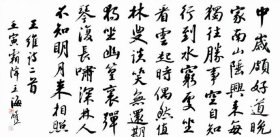 中歲頗好道晚
家南山陲興来每
獨往勝事空自知
行到水窮處坐
看雲起時偶然值
林叟談笑無還期
獨坐幽篁裏彈
琴復長嘯深林人
不知明月来相照
王維詩二首
壬寅霜降王海